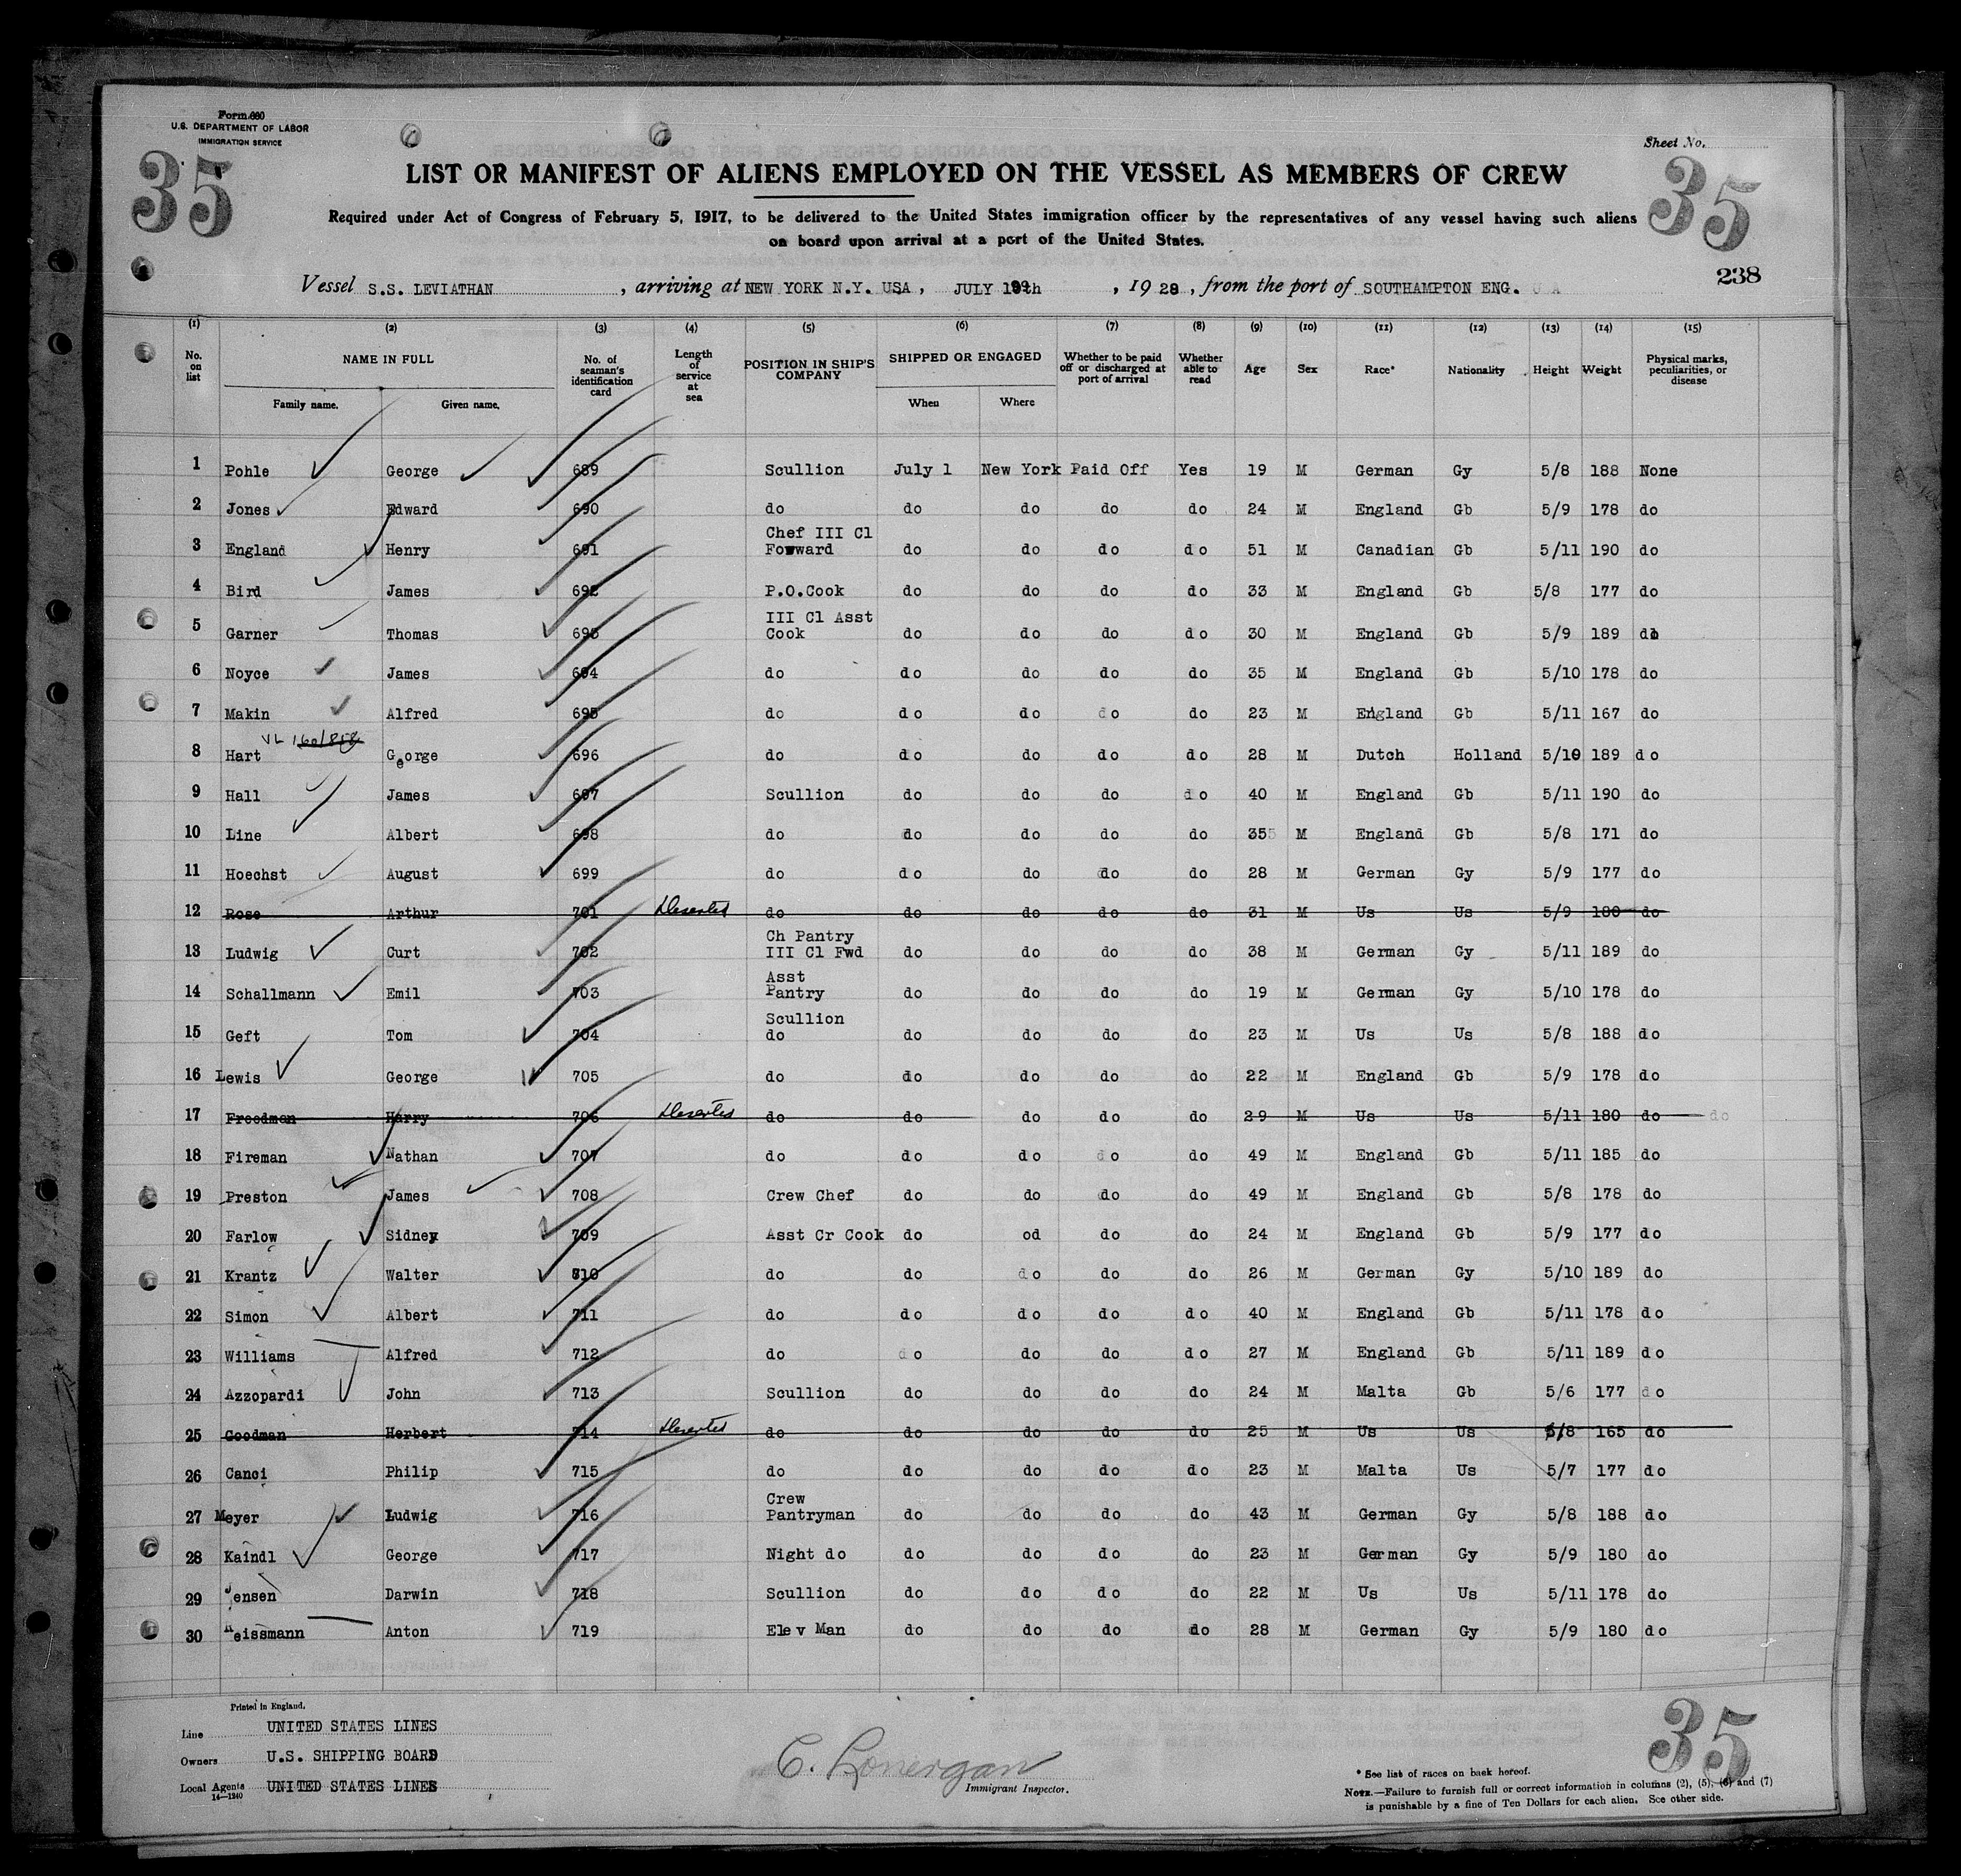 Form 680
U.S. DEPARTMENT OF LABOR
IMMIGRATION SERVICE
Sheet No.
35
35
LIST OR MANIFEST OF ALIENS EMPLOYED ON THE VESSEL AS MEMBERS OF CREW
Required under Act of Congress of February 5, 1917, to be delivered to the United States immigration officer by the representatives of any vessel having such aliens
on board upon arrival at a port of the United States.
238
Vessel S.S. LEVIATHAN, arriving at NEW YORK N.Y. USA, JULY, 1928, from the port of SOUTHAMPTON ENG.
(1) (2) (3) (4) (5) (6) (7) (8) (9) (10) (11) (12) (13) (14) (15)
No. on list NAME IN FULL No. of seaman's identification card Length of service at sea POSITION IN SHIP'S COMPANY SHIPPED OR ENGAGED Whether to be paid off or discharged at port of arrival Whether able to read Age Sex Race* Nationality Height Weight Physical marks, peculiarities, or disease
Family name. Given name. When Where
1 Pohle George 689 Scullion July 1 New York Paid Off Yes 19 M German Gy 5/8 188 None
2 Jones Edward 690 do do do do do 24 M England Gb 5/9 178 do
3 England Henry 691 Chef III Cl Forward do do do do 51 M Canadian Gb 5/11 190 do
4 Bird James 692 P.O.Cook do do do do 33 M England Gb 5/8 177 do
5 Garner Thomas 693 III Cl Asst Cook do do do do 30 M England Gb 5/9 189 do
6 Noyce James 694 do do do do do 35 M England Gb 5/10 178 do
7 Makin Alfred 695 do do do do do 23 M England Gb 5/11 167 do
8 Hart George 696 do do do do do 28 M Dutch Holland 5/10 189 do
9 Hall James 697 Scullion do do do do 40 M England Gb 5/11 190 do
10 Line Albert 698 do do do do do 35 M England Gb 5/8 171 do
11 Hoechst August 699 do do do do do 28 M German Gy 5/9 177 do
12 Rose Arthur 701 Deserted do do do do do 31 M Us Us 5/9 180 do
13 Ludwig Curt 702 Ch Pantry III Cl Fwd do do do do 38 M German Gy 5/11 189 do
14 Schallmann Emil 703 Asst Pantry do do do do 19 M German Gy 5/10 178 do
15 Geft Tom 704 Scullion do do do do do 23 M Us Us 5/8 188 do
16 Lewis George 705 do do do do do 22 M England Gb 5/9 178 do
17 Freedman Harry 706 Deserted do do do do do 29 M Us Us 5/11 180 do do
18 Fireman Nathan 707 do do do do do 49 M England Gb 5/11 185 do
19 Preston James 708 Crew Chef do do do do 49 M England Gb 5/8 178 do
20 Farlow Sidney 709 Asst Cr Cook do od do do 24 M England Gb 5/9 177 do
21 Krantz Walter 810 do do do do do 26 M German Gy 5/10 189 do
22 Simon Albert 711 do do do do do 40 M England Gb 5/11 178 do
23 Williams Alfred 712 do do do do do 27 M England Gb 5/11 189 do
24 Azzopardi John 713 Scullion do do do do 24 M Malta Gb 5/6 177 do
25 Goodman Herbert 714 Deserted do do do do do 25 M Us Us 5/8 165 do
26 Canci Philip 715 do do do do do 23 M Malta Us 5/7 177 do
27 Meyer Ludwig 716 Crew Pantryman do do do do 43 M German Gy 5/8 188 do
28 Kaindl George 717 Night do do do do do 23 M German Gy 5/9 180 do
29 Jensen Darwin 718 Scullion do do do do 22 M Us Us 5/11 178 do
30 Reissmann Anton 719 Elev Man do do do do 28 M German Gy 5/9 180 do
Printed in England.
Line UNITED STATES LINES
Owners U.S. SHIPPING BOARD
Local Agents UNITED STATES LINES
14—1240
C. Lonergan
Immigrant Inspector.
35
* See list of races on back hereof.
NOTE.—Failure to furnish full or correct information in columns (2), (5), (6) and (7)
is punishable by a fine of Ten Dollars for each alien. See other side.